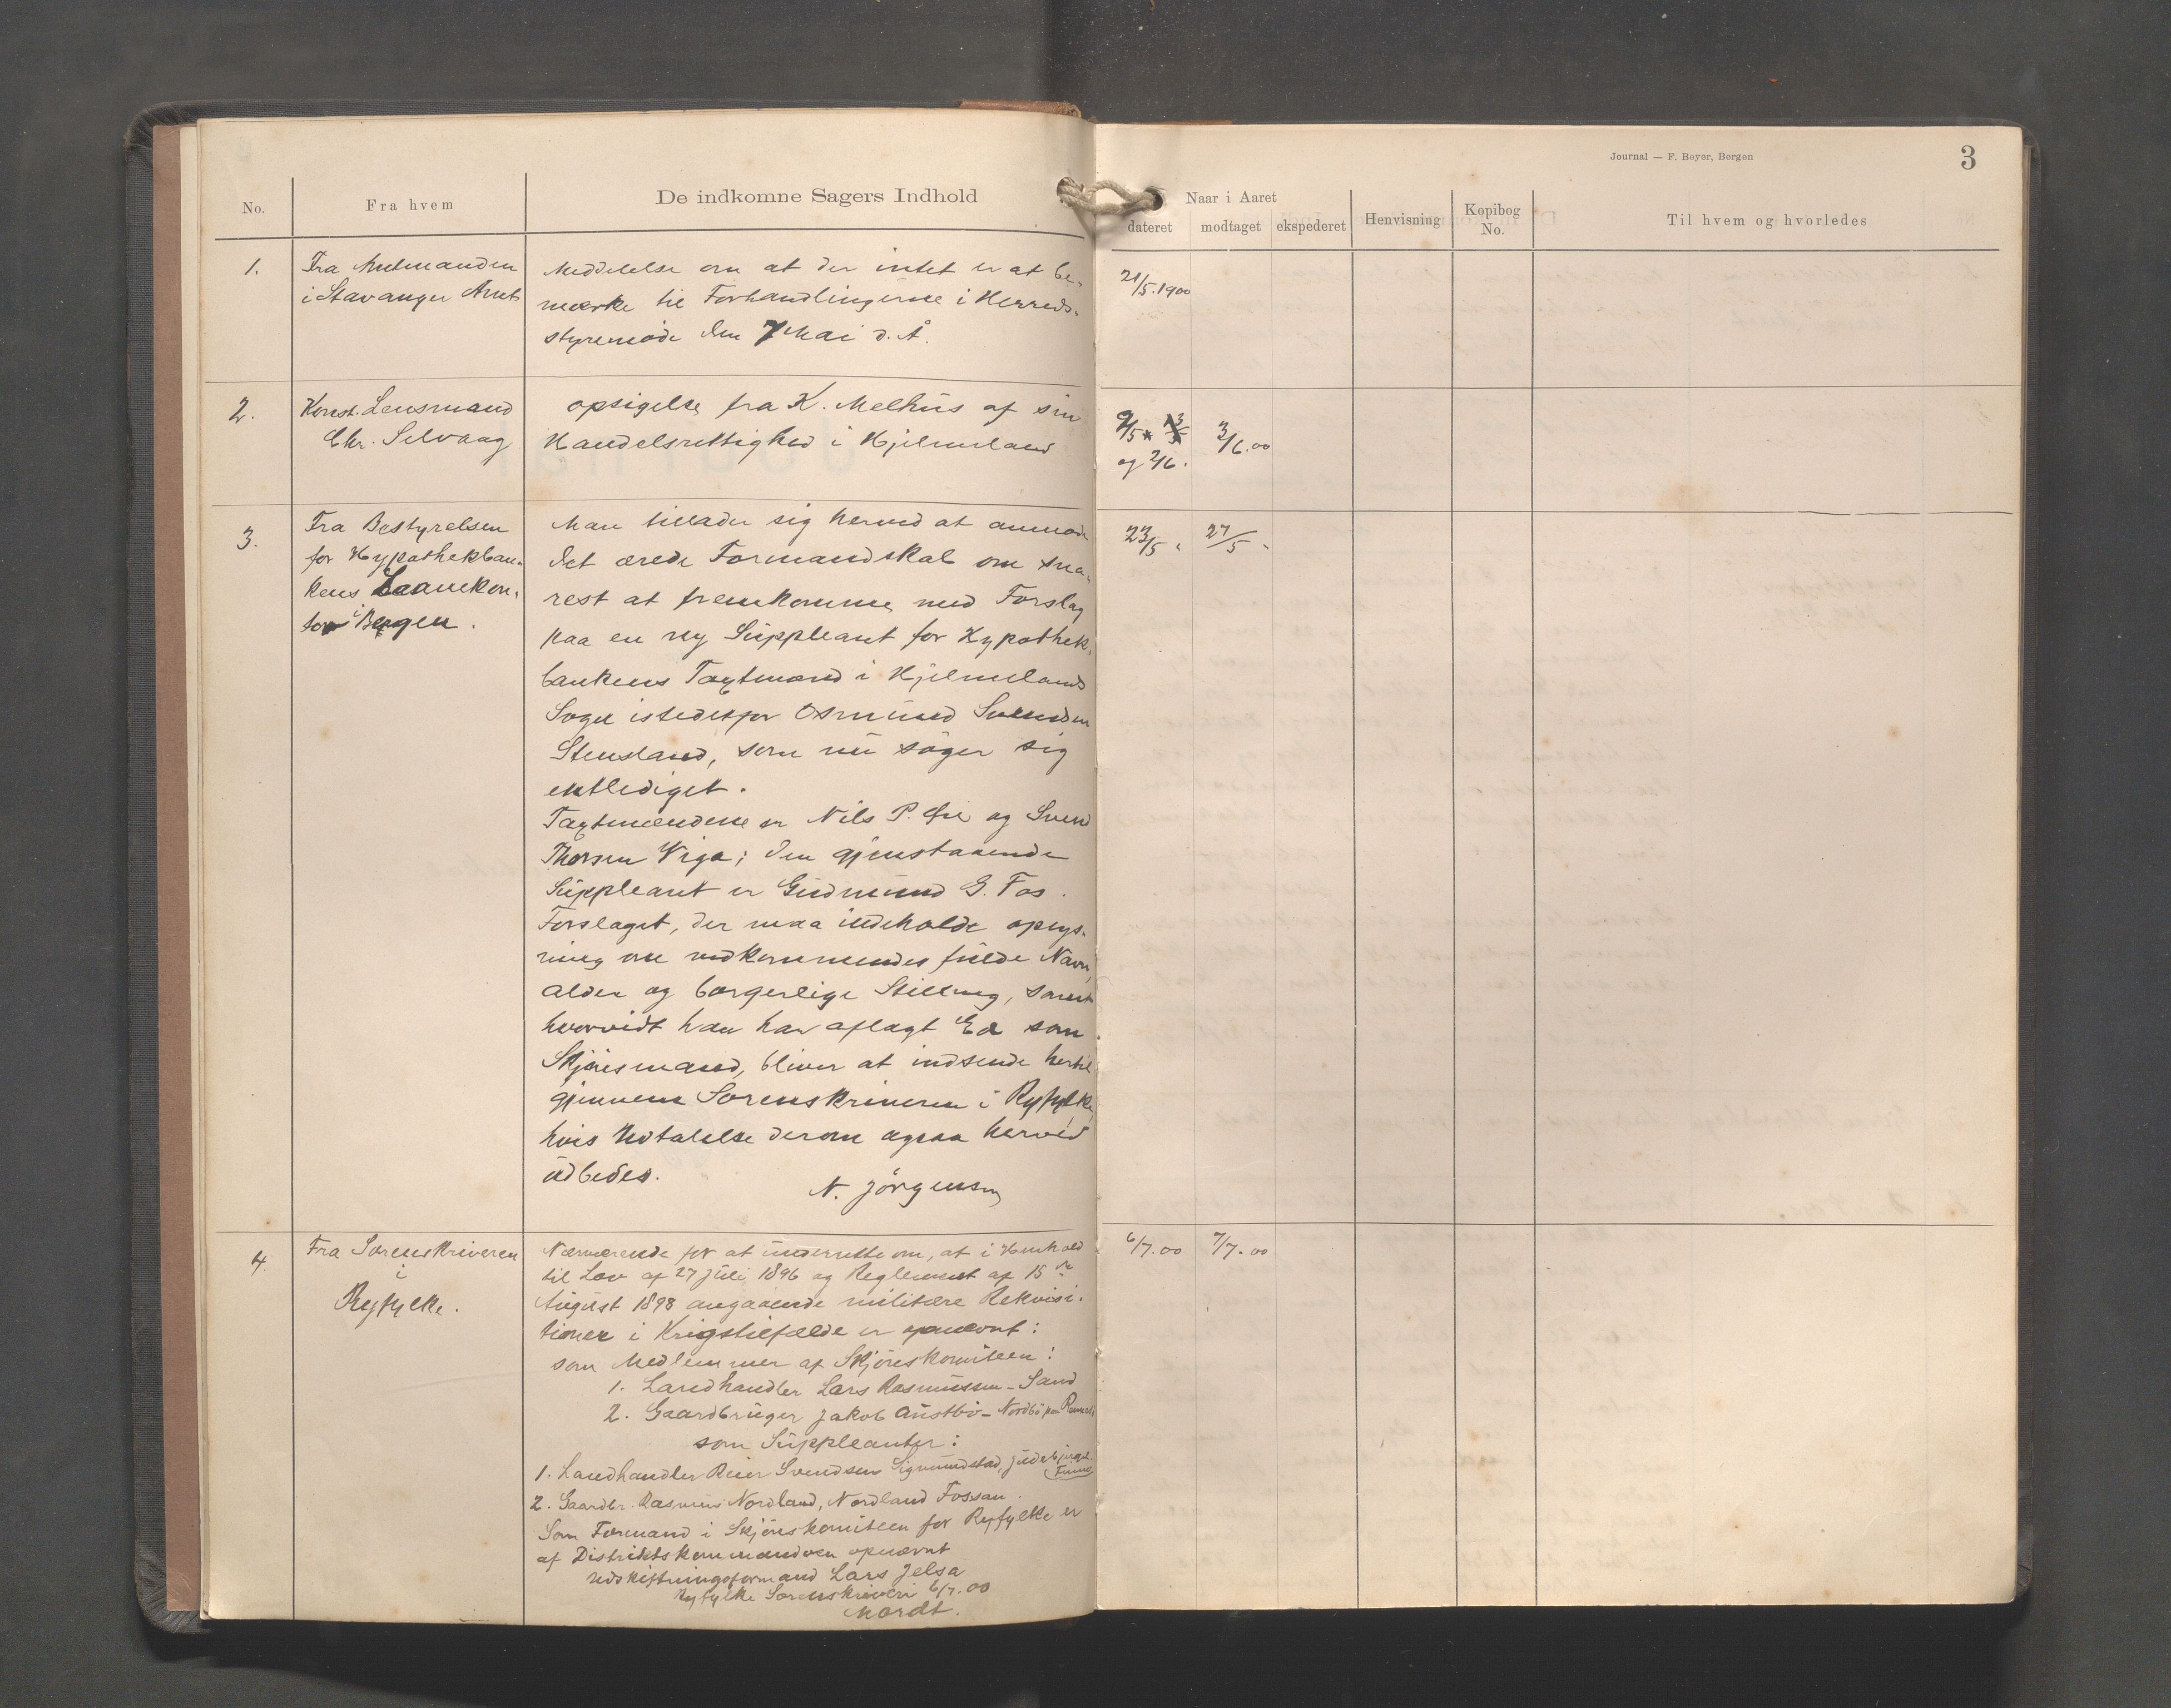 Journal — F. Beyer, Bergen
3
No.
Fra hvem
De indkomne Sagers Indhold
Naar i Aaret
dateret
modtaget
ekspederet
Henvisning
Kopibog No.
Til hvem og hvorledes
1.
Fra Amtmanden
i Stavanger Amt
Meddelelse om at der intet er at be-
mærke til Forhandlingerne i Herreds-
styremöde den 7 Mai d. Å.
21/5.1900
2.
Konst. Lensmand
Chr. Selvaag
opsigelse fra K. Melhus af sin
Handelsrettighed i Hjelmeland
9/5
og 2/6.
3/6.00
3.
Fra Bestyrelsen
for Hypothekban-
kens Laanekon-
tor i Bergen.
Man tillader sig herved at anmode
det ærede Formandskab om sna-
rest at fremkomme med Forslag
paa en ny Suppleant for Hypothek-
bankens Taxtmænd i Hjelmelands
Sogn istedetfor Osmund Svendsen
Stensland, som nu söger sig
entlediget.
Taxtmændene er Nils P. Øie og Svend
Thorsen Viga; den gjenstaaende
Suppleant er Gudmund G. Fos.
Forslaget, der maa indeholde oplys-
ning om vedkommendes fulde Navn,
alder og borgerlige Stilling, samt
hvorvidt han har aflagt Ed som
Skjönsmand, bliver at indsende hertil
gjennem Sorenskriveren i Ryfylke,
hvis Udtalelse derom ogsaa herved
udbedes.
N. Jörgensen
23/5
27/5
4.
Fra Sorenskriveren
i
Ryfylke.
Nærværende for at underrette om, at i Henhold
til Lov af 27 Juli 1896 og Reglement af 15de
August 1898 angaaende militære Rekvisi-
tioner i Krigstilfælde er opnævnt:
som Medlemmer af Skjönskomiteen:
1. Landhandler Lars Rasmussen - Sand
2. Gaardbruger Jakob Austbö - Nordbö paa Rennesö
som Suppleanter:
1. Landhandler Reier Svendsen Sigmundstad, Judeberget
Finnö
2. Gaardbr. Rasmus Nordland, Nordland Fossan.
Som Formand i Skjönskomiteen for Ryfylke er
af Distriktskommandoen opnævnt
Udskiftningsformand Lars Jelsa
Ryfylke Sorenskriveri 6/7.00
Mordt.
6/7.00
7/7.00